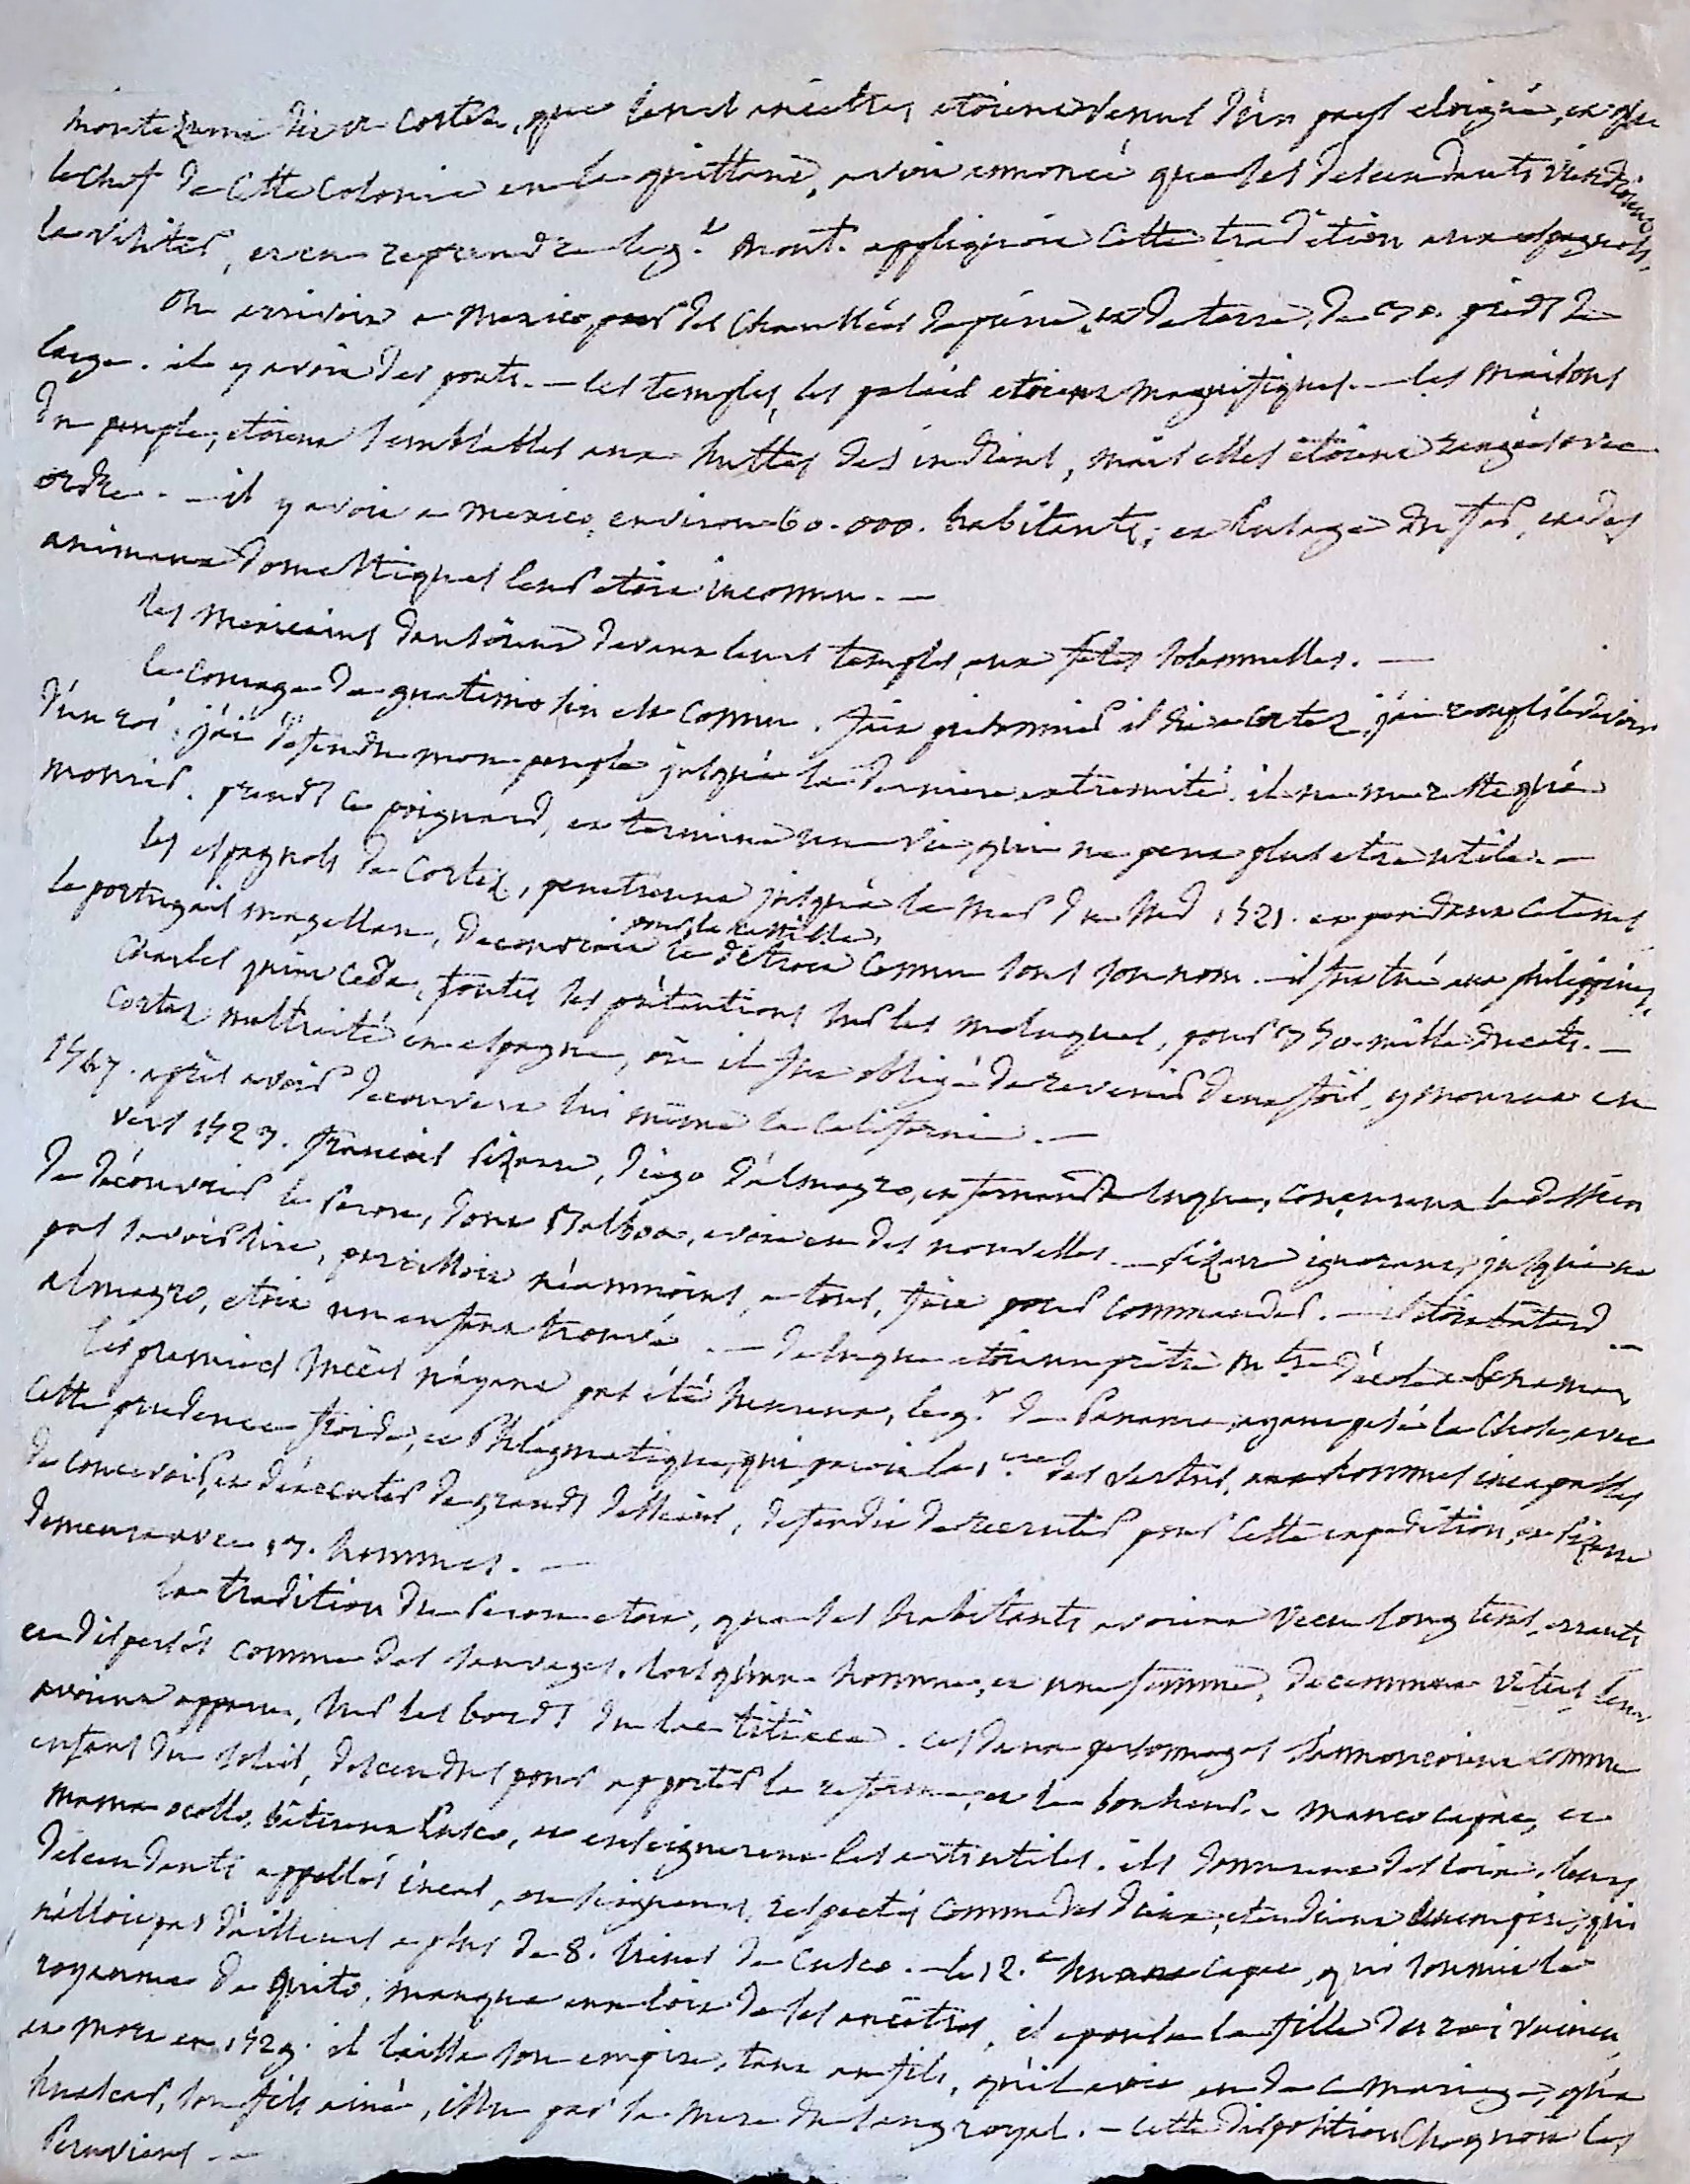 montezuma dit a Cortez, que leurs ancêtres etoient venus d'un pays eloigné, et que
le chef de cette colonie en la quittant, avoit annoncé que ses descendants viendroient
la visiter, et en reprendre le g.t mont. appliquoit cette tradition aux espagnols.
On arrivoit a Mexico, par des chaussées de pierre, et de terre, de 30. pieds de
large. il y avoit des ponts. — les temples, les palais etoient magnifiques. — les maisons
du peuple, etoient semblables aux huttes des indiens, mais elles etoient rangées avec
ordre. — il y avoit a Mexico environ 60.000. habitants; et l'usage du fer, et des
animaux domestiques leur etoit inconnu. —
les Mexicains dansoient devant leurs temples, aux fêtes solemnelles. —
le courage de guatimosin est connu. fait prisonnier il dit a Cortez, j'ai rempli le devoir
d'un roi, j'ai defendu mon peuple jusqu'a la derniere extremité. il ne me reste qu'a
mourir. prends ce poignard, et termine une vie, qui ne peut plus etre utile. —
les espagnols de Cortez, penetrerent jusqu'a la mer du sud 1521. et pendant ce tems
le portugais magellan, decouvroit pour la castille, le détroit connu sous son nom. — il fut tué aux philippines.
Charles quint ceda, toutes ses prétentions sur les moluques, pour 350. mille ducats. —
Cortez maltraité en espagne, où il fut obligé de revenir deux fois, y mourut en
1547. après avoir decouvert lui même la Californie. —
vers 1523. francois Pizarre, diego d'almagro, et fernand de luque, conçurent le dessein
de découvrir le Perou, dont Balboa, avoit eu des nouvelles. — Pizarre ignorant, jusqu'a ne
pas savoir lire, paroissoit néanmoins, a tous, fait pour commander. — il etoit batard —
almagro, etoit un enfant trouvé. — de luque etoit un prêtre m.tre d'école a Panama,
les premiers succès n'ayant pas été heureux, le g.r de Panama, ayant pesé la chose, avec
cette prudence froide, et phlegmatique, qui paroit la 1.ere des vertus, aux hommes incapables
de concevoir, et d'éxécuter de grands desseins, defendit de recruter pour cette expedition, et Pizarre
demeura avec 13. hommes. —
la tradition du Perou etoit, que ses habitants avoient vecu long tems, errants
et dispersés comme des sauvages. lorsqu'un homme, et une femme, decemment vêtus leur
avoient apparu, sur les bords du lac titicaca. ces deux personnages s'annoncoient comme
enfans du soleil, descendus pour apporter la reforme, et le bonheur. — Manco capac, et
mama ocollo, bâtirent Cusco, et enseignerent les arts utiles. ils donnerent des loix. leurs
descendants appellés incas, ou seigneurs, respectés comme des dieux, etendirent leur empire, qui
n'alloit pas d'ailleurs a plus de 8. lieues de Cusco. — le 12.e huana capac, qui soumit le
royaume de Quito, manqua aux loix de ses ancêtres, il epousa la fille du roi vaincu,
et mort en 1529. il laissa son empire, tant au fils, qu'il avoit eu de ce mariage, qu'a
huascar, son fils ainé, issu par sa mere du sang royal. — cette disposition choquoit les
Peruviens. —